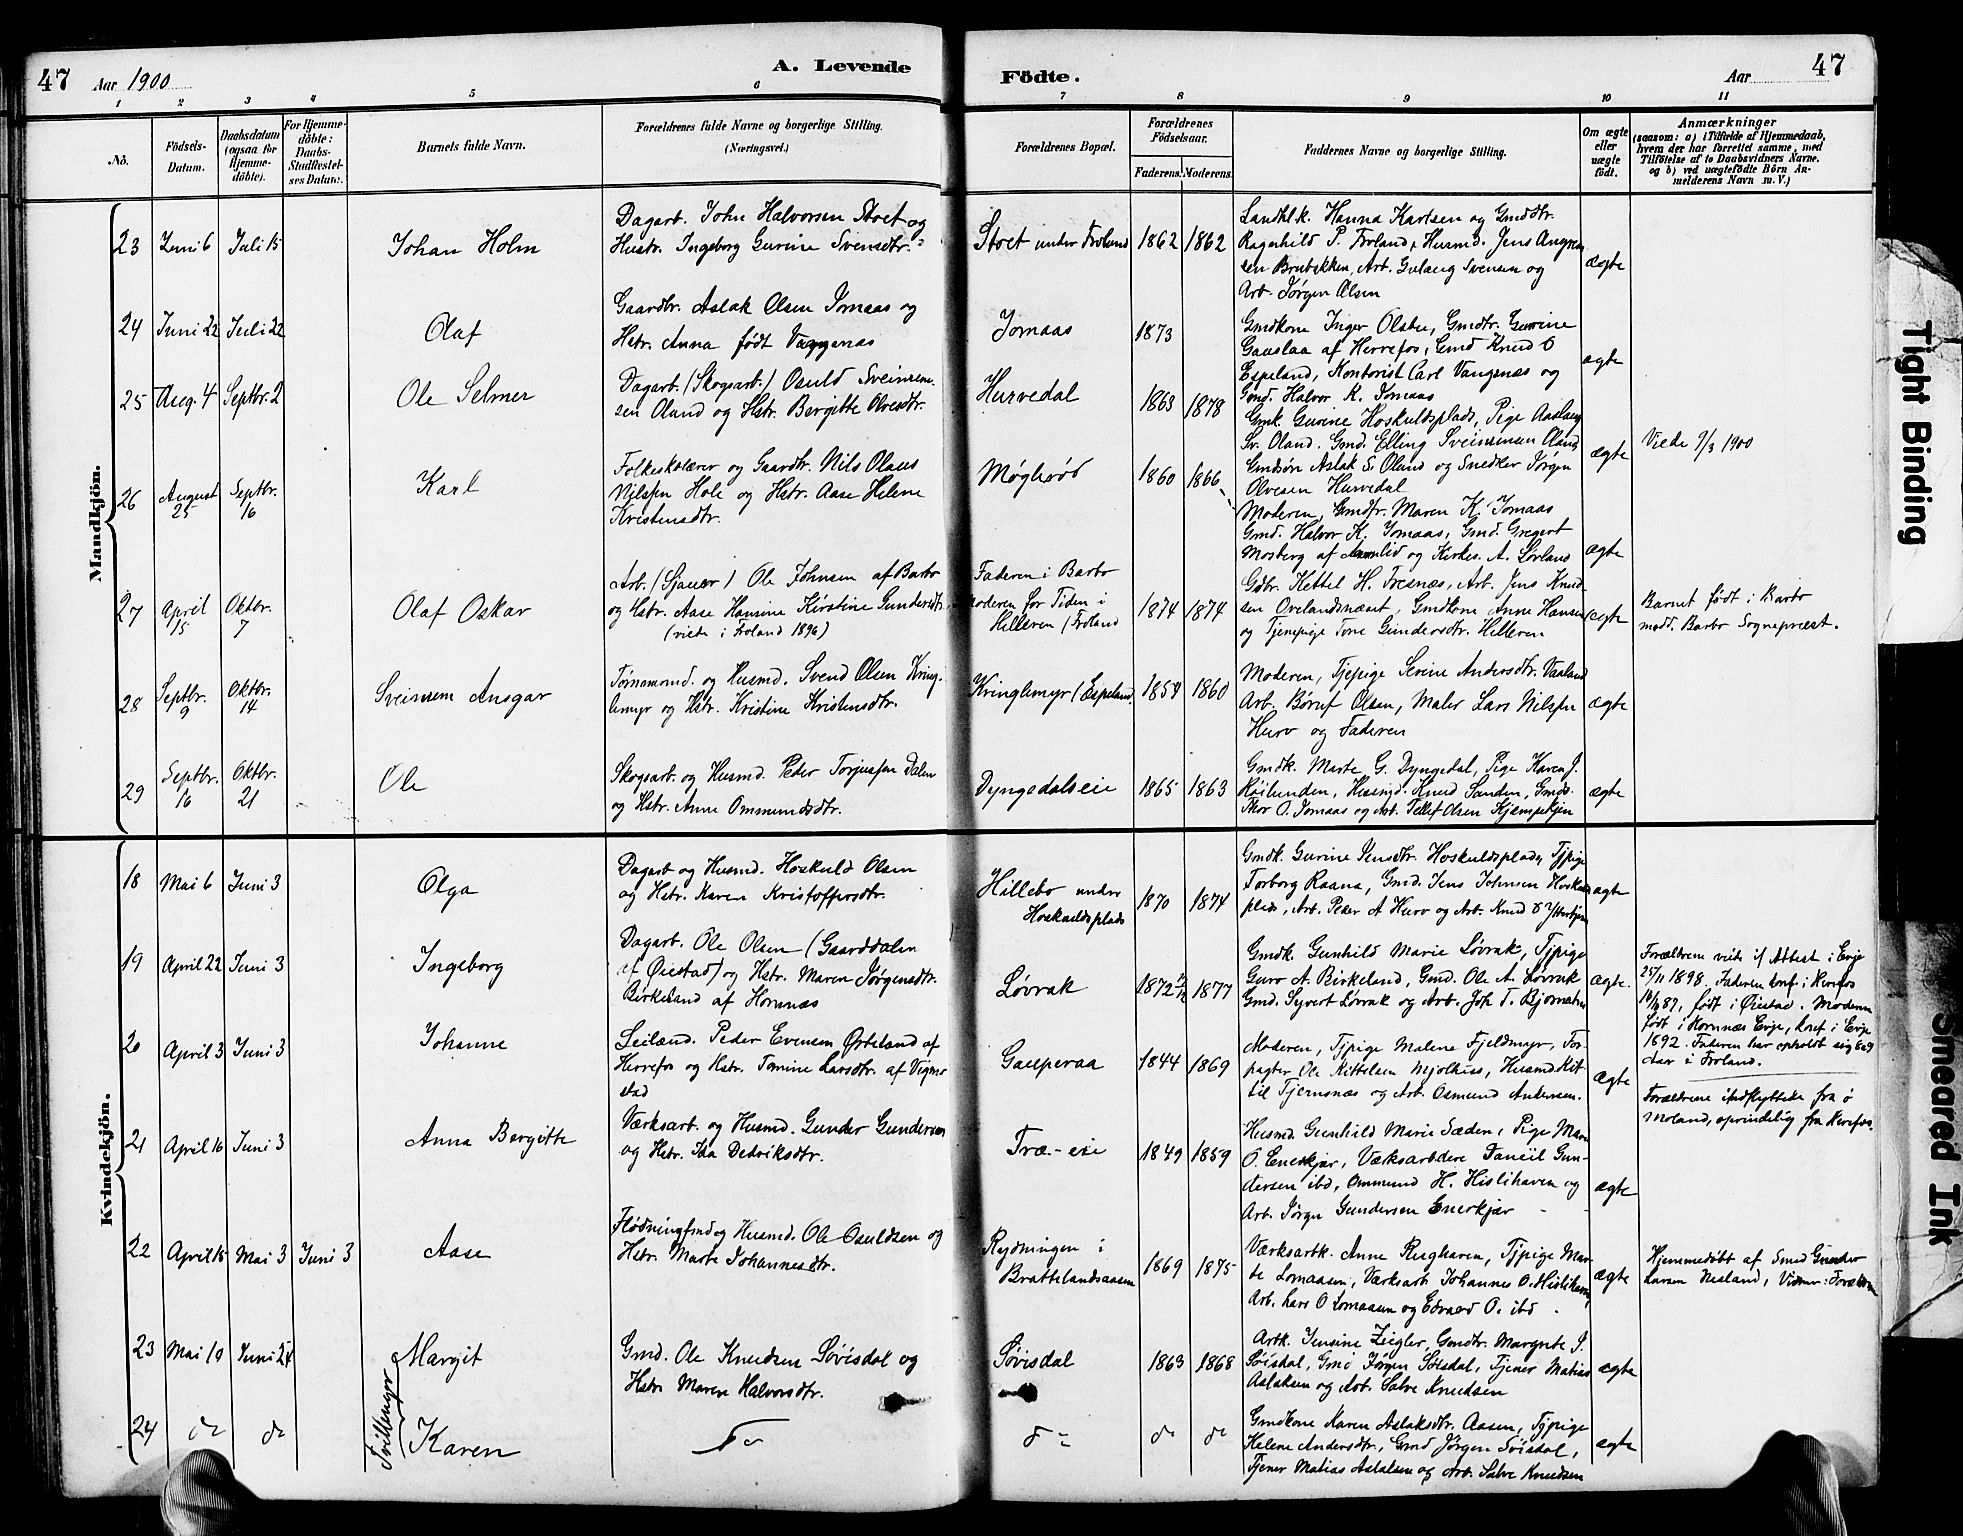 47 Aar 1900 A. Levende Födte. Aar 47
1 2 3 4 5 6 7 8 9 10 11
No.
Födsels-
Datum.
Daabsdatum
(ogsaa for
Hjemme-
döbte).
For Hjemme-
döbte:
Daabs-
Stadfæstel-
ses Datum.
Barnets fulde Navn.
Forældrenes fulde Navne og borgerlige Stilling.
(Næringsvei.)
Forældrenes Bopæl.
Forældrenes
Födselsaar.
Faderens. Moderens.
Faddernes Navne og borgerlige Stilling.
Om ægte
eller
uægte
födt.
Anmærkninger
(saasom: a) i Tilfælde af Hjemmedaab,
hvem der har forrettet samme, med
Tilföielse af to Daabsvidners Navne,
og b) ved uægtefödte Börn An-
melderens Navn m. V.)
Mandkjön.
23 Juni 6 Juli 15 Johan Holm
Dagarb. John Halvorsen Stoet og
Hustr. Ingeborg Gurine Svensdtr.
Stoet under Froland 1862 1862
Landhlk. Hanna Karlsen og Gmddtr.
Ragenhild P. Froland, Husmd. Jens
Brubakken, Arb. Svensen og
Arb. Jørgen Olsen
ægte
24 Juni 22 Juli 22 Olaf
Gaardbr. Aslak Olsen Jomaas og
Hstr. Anna født Vangenæs
Jomaas 1873
Gmdkone Inger Olsbu, Gmdtr. Gurine
Gauslaa af Herrefos, Gmd Knud O
Espeland, Kontorist Carl Vangenæs og
Gmd. Halvor K. Jomaas
ægte
25 Aug. 4 Septbr. 2 Ole Selmer
Dagarb. (Skogsarb.) Osuld Sveinsen-
sen Oland og Hstr. Bergitte Olvesdtr.
Hurvedal 1863 1878
Gmk. Gurine Hoskuldsplads, Pige Aaslaug
Sv. Oland, Gmd. Elling Sveinsensen Oland,
Gmdsøn Aslak S. Oland og Snedker Jørgen
Olvesen Hurvedal
ægte
Viede 9/3 1900
26 August 25 Septbr. 16 Karl
Folkeskolærer og Gaardbr. Nils Olaus
Nilssen Hole og Hstr. Aase Helene
Kristensdtr.
Møglerød 1860 1866
Moderen, Gmdtr. Maren K. Jomaas
Gmd. Halvor K. Jomaas, Gmd. Gregert
Mosberg af og Kirkes. A. Lovland
ægte
27 April 15 Oktbr. 7 Olaf Oskar
Arb. (Sjauer) Ole Johnsen af Barbo
og Hstr. Aase Hansine Kirstine Gundersdtr.
(viede i Froland 1896)
Faderen i Barbo
Moderen for Tiden i
Helleren (Froland
1874 1874
Gdbr. Kettel H. Fresnæs, Arb. Jens Knud-
sen Ovelandsnæset, Gmdkone Anne Hansen
og Tjenepige Tone Gundersdtr. Helleren
ægte
Barnet født i Barbo
medd. Barbo Sognepræst.
28 Septbr. 9 Oktbr. 14 Sveinsem Ansgar
Tømmermd. og Husmd. Svend Olsen Kring-
lemyr og Hstr. Kristine Kristensdtr.
Kringlemyr (Espeland 1854 1860
Moderen, Tjepige Serine Andersdtr. Vaaland
Arb. Børuf Olsen, Maler Lars Nilssen
Hurv og Faderen
ægte
29 Septbr. 16 Oktbr. 21 Ole
Skogsarb. og Husmd. Peder Torjussen Dalen
og Hstr. Anne Ommundsdtr.
Dyngedalseie 1865 1863
Gmdk. Marte G. Dyngedal, Pige Karen J.
Røilunden, Husmd. Knud Sanden, Gmds.
Thor O. Jomaas og Arb. Tellef Olsen Kjempekjen
ægte
Kvindekjön.
18 Mai 6 Juni 3 Olga
Dagarb og Husmd. Hoskuld Olsen
og Hstr. Karen Kristoffersdtr.
Hillebo under
Hoskuldsplads
1870 1874
Gmdk. Gurine Jensdtr. Hoskuldsplads, Tjpige
Torborg Raana, Gmd. Jens Johnsen Hoskuld-
plads, Arb. Peder A Hurv og Arb. Knud O Ytterbøen
ægte
19 April 22 Juni 3 Ingeborg
Dagarb. Ole Olsen (Gaarddalen
af Øiestad) og Hstr. Maren Jørgensdtr.
Birkeland af Hornnæs
Løvrak 1872 1877
Gmdk. Gunhild Marie Løvrak, Tjpige
Guro A. Birkeland, Gmd. Ole A. Løvrak
Gmd. Syvert Løvrak og Arb. Joh T. Bjornebu
ægte.
Forældrene viede if Attest i Evje
25/11 1898. Faderen konf. i Herefos
87, født i Øiestad. Moderen
født i Hornnæs Evje, konf i Evje
1892. Faderen har opholdt sig
Aar i Froland.
20 April 3 Juni 3 Johanne
Leilænd. Peder Evensen Ørteland af
Herrefos og Hstr. Tomine Larsdtr. af Vigme-
stad
Gauperaa 1844 1869
Moderen, Tjpige Malene Fjeldmyr, For-
pagter Ole Kittelsen Mjolhus, Husmd. Kit-
til Tjernsnæs og Arb. Osmund Andersen.
ægte
Forældrene indflyttede fra ø
Moland, oprindelig fra Herefos.
21 April 16 Juni 3 Anna Bergitte
Værksarb. og Husmd. Gunder Gundersen
og Hstr. Ida Dedriksdtr.
Træ-eie 1849 1859
Husmd. Gunhild Marie Sæden, Pige Mari
O. Enerkjær, Værksarbdere Taneiil Gun-
dersen ibd, Ommund H. Hislihaven og
Arb. Jørgn Gundersen Enerkjær
ægte
22 April 15 Mai 3 Juni 3 Aase
Flødningsmd og Husmd. Ole Osuldsen og
Hstr. Marte Johannesdtr.
Rydningen i
Brattelandsaasen
1869 1875
Værksarbk. Anne Rughaven, Tjpige Mar-
te Lomaasen, Værksarb. Johannes O. Hislihaven,
Arb. Lars O Lomaasen og Edvard O. ibd
ægte
Hjemmedøbt af Smed Gunder
Larsen Nesland, Vidner: Forældrene
23 Mai 19 Juni 24 Margit
Gmd. Ole Knudsen Søvisdal og
Hstr. Maren Halvorsdtr.
Søvisdal 1863 1868
Arbk. Jensine Zeigler, Gmdtr. Margrete J.
Søisdal, Gmd Jørgen Søisdal, Tjener Matias
Aslaksen og Arb. Salve Knudsen
ægte
Tvillinger
24 do do Karen do do do do
Gmdkone Karen Aslaksdtr. Aasen, Tjpige
Helene Andersdtr., Gmd Jørgen Søisdal,
Tjener Matias Aslaksen og Arb. Salve Knudsen
ægte
Tight Binding
Smeared Ink